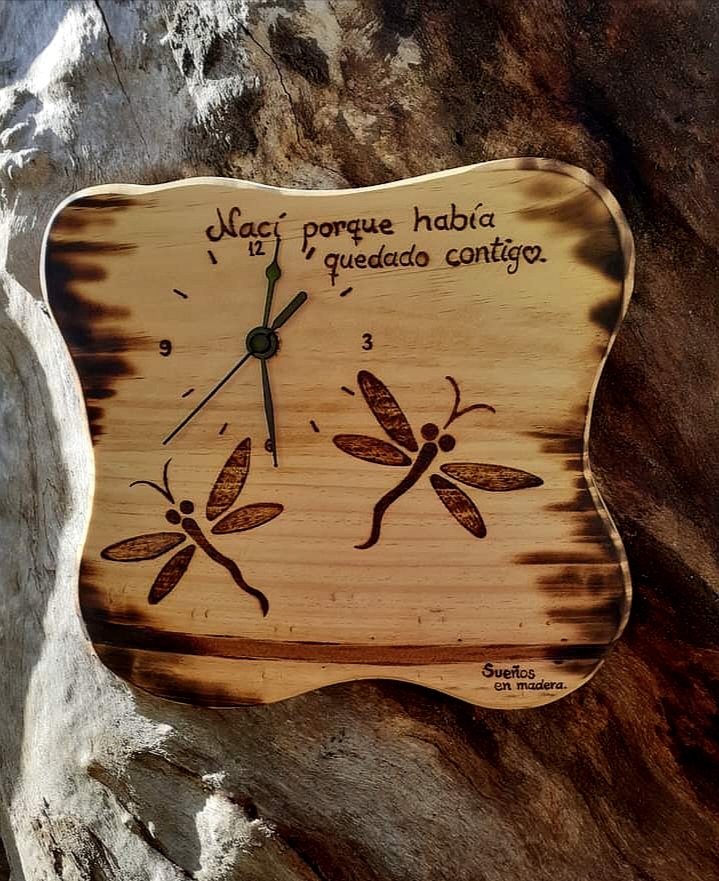 Nací porque había
quedado contigo.
12
9
3
6
Sueños
en madera.